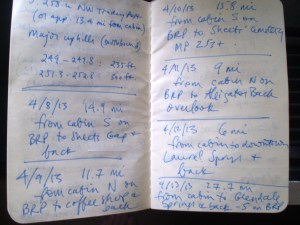 258.2 N
(at app 13.2 mi from cabin)
Major uphills
249 - 249.8 :
251.3 - 252.8 :
4/8/13 14.9 mi
from cabin S on
BRP to Sheets Gap +
back
4/9/13 11.7 mi
from cabin N on
BRP to coffee shop &
back
4/10/13 15.8 mi
from cabin S on
BRP to Sheets Cemetery
MP 254
4/11/13 9 mi
from cabin N on
BRP to Alligator Back
overlook
4/12/13 6 mi
from cabin to downtown
Laurel Springs +
back
4/13/13 27.7 mi
from cabin to Glendale
Springs & back - S on BRP